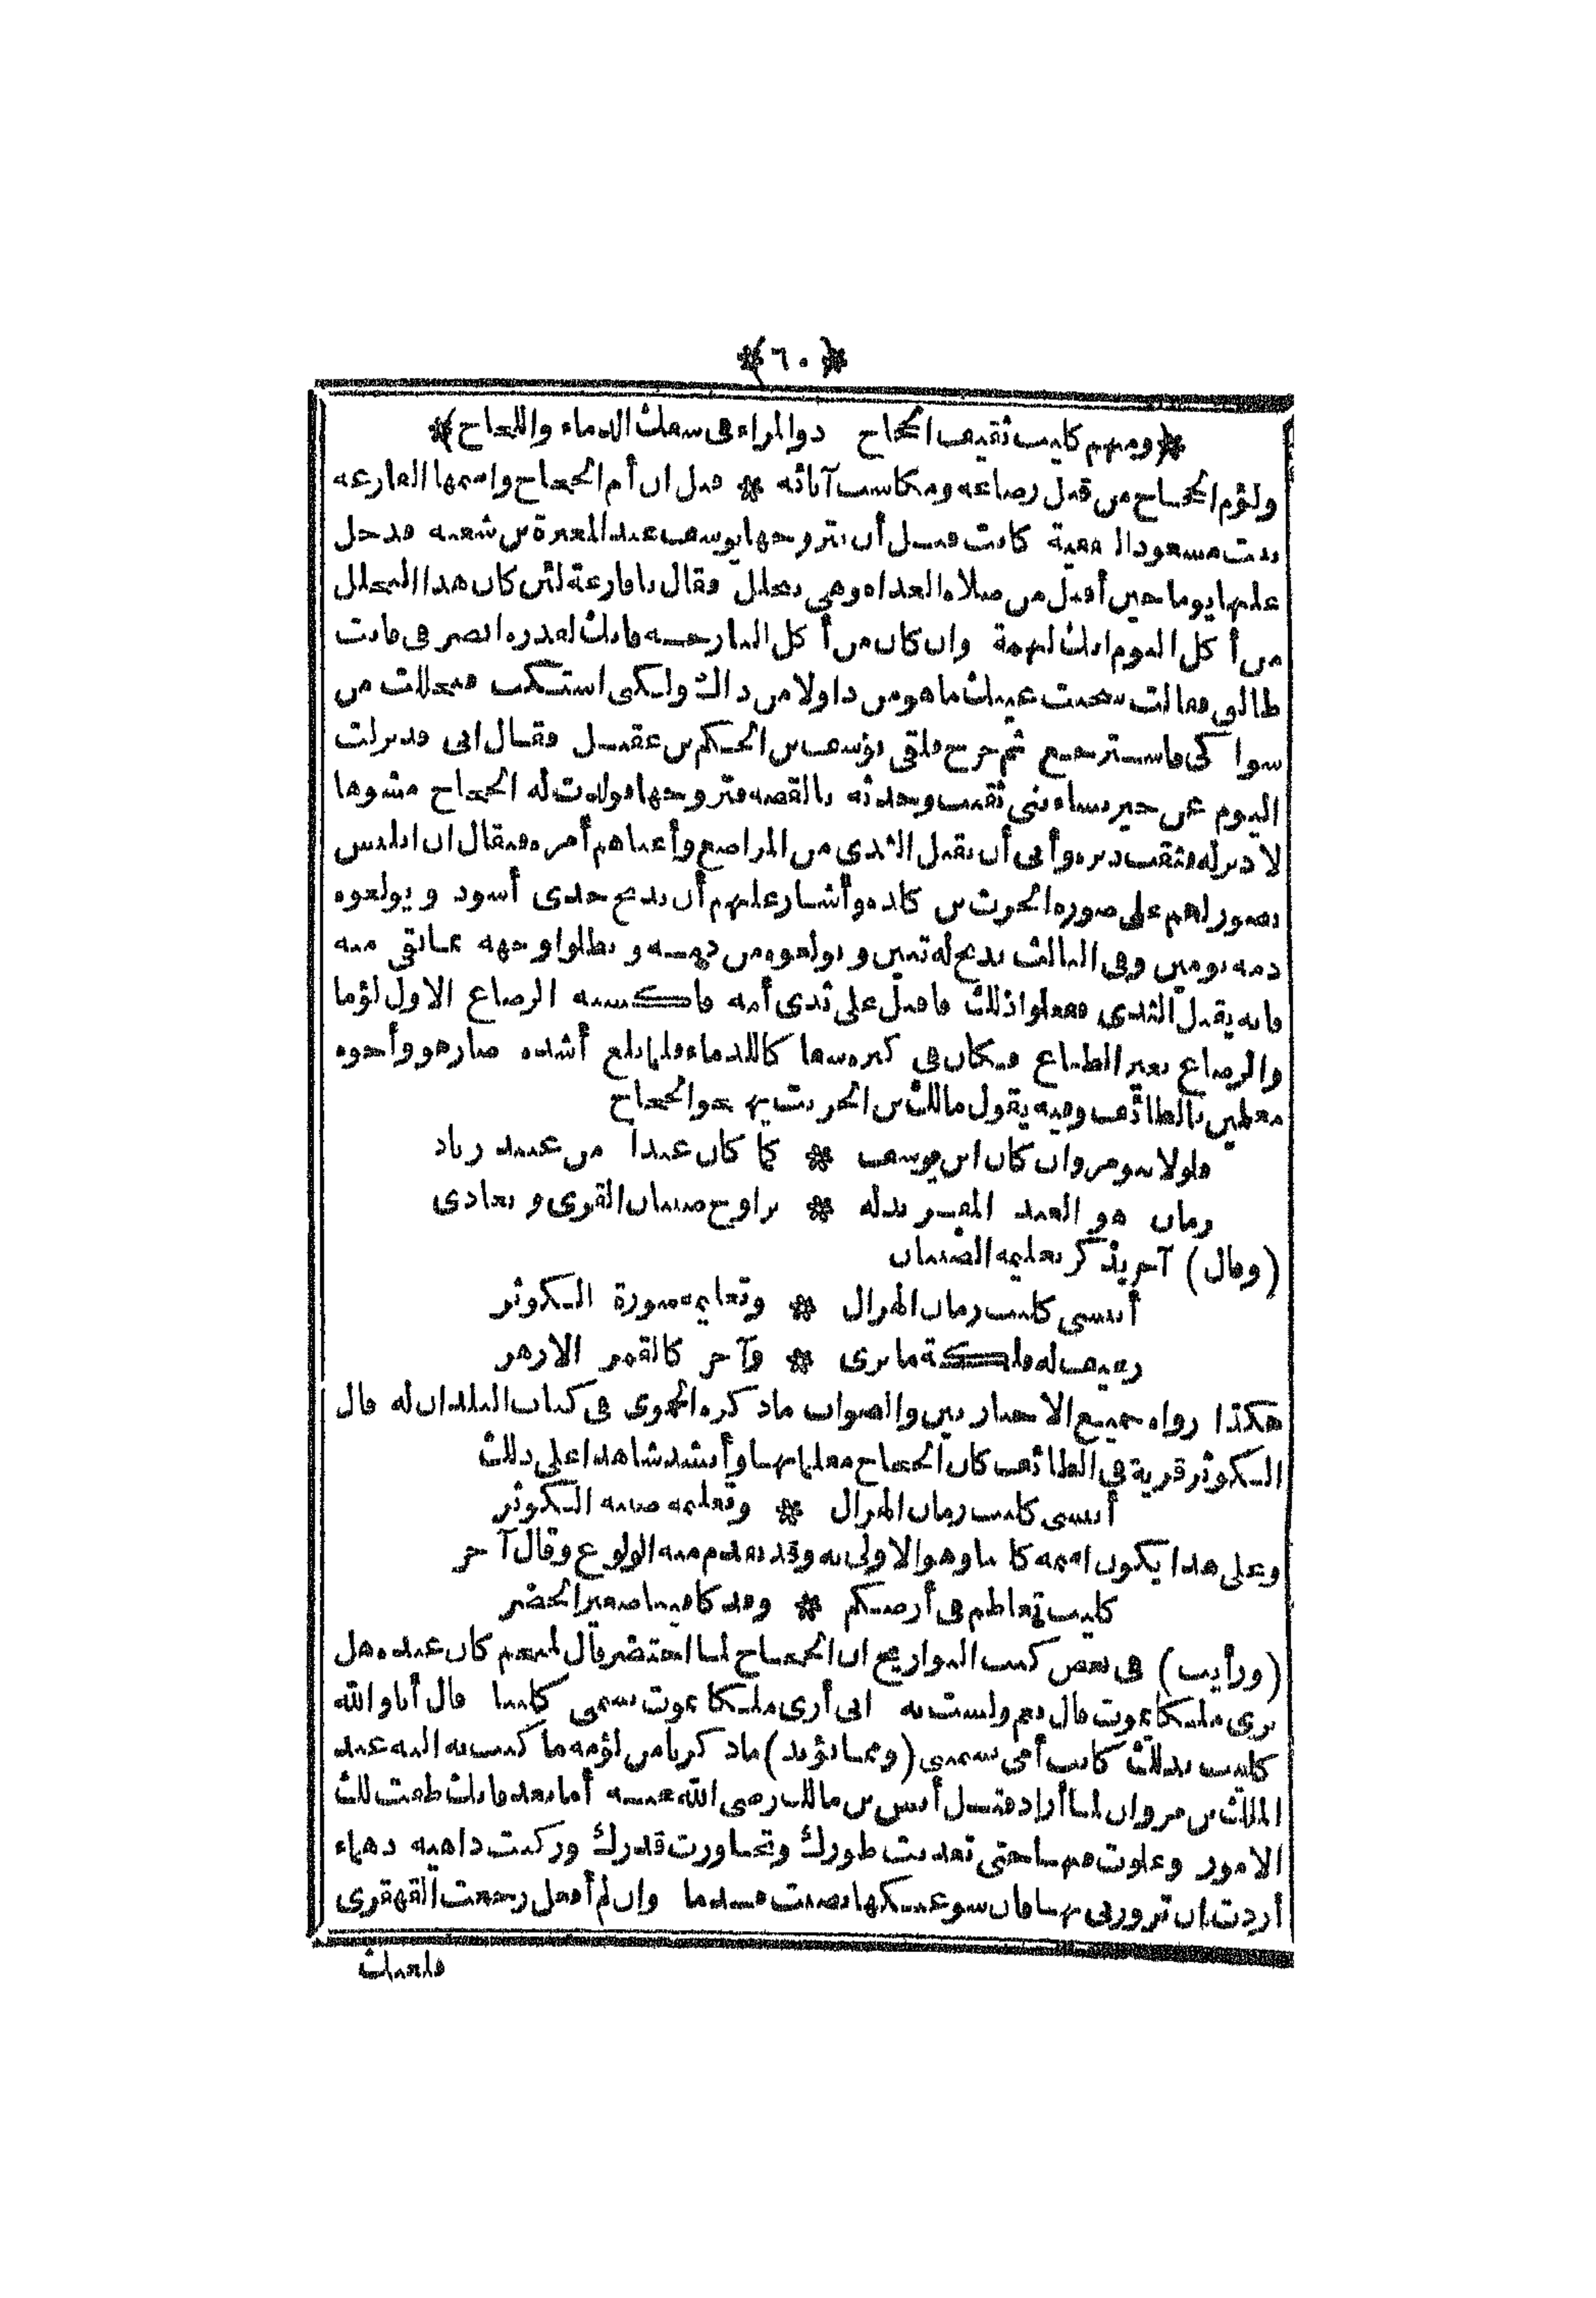 ﴿٦٠﴾
﴿ومنهم كليب ثقيف الحجاج ذو المراء فى سفك الدماء واللجاج﴾
ولؤم الحجاج من قبل رضاعه ومكاسب آبائه * قيل ان أم الحجاج واسمها الفارعة
بنت مسعود الثقفية كانت قبل أن يتزوجها يوسف عند المغيرة بن شعبة فدخل
عليها يوما حين أقبل من صلاة الغداة وهى تتخلل فقال يا فارعة لئن كان هذا التخلل
من أكل اليوم انك لنهمة وان كان من أكل البارحة فانك لقذرة انصرفى فانت
طالق فقالت سخنت عينك ما هو من ذا ولا من ذاك ولكنى استكت فتخللت من
سواكى فاسترجع ثم خرج فلقى يوسف بن الحكم بن عقيل فقال انى قد نزلت
اليوم عن خير نساء بنى ثقيف وحدثه بالقصة فتزوجها فولدت له الحجاج مشوها
لا دبر له فثقب دبره وأبى أن يقبل الثدى من المراضع وأعياهم أمره فيقال ان ابليس
تصور لهم على صورة الحرث بن كلدة وأشار عليهم أن يذبح جدى أسود و يولغوه
دمه يومين وفى الثالث يذبح له تيس و يولغوه من دمه و يطلوا وجهه بما تبقى منه
فانه يقبل الثدى ففعلوا ذلك فاقبل على ثدى أمه فاكسبه الرضاع الاول لؤما
والرضاع يغير الطباع فكان فى كبره سفاكا للدماء فلما بلغ أشده صار هو وأخوه
معلمين بالطائف وفيه يقول مالك بن الحريث يهجو الحجاج
فلولا بنو مروان كان ابن يوسف * كما كان عبدا من عبيد زياد
زمان هو العبد المقر بذله * يراوح صبيان القرى و يغادى
(وقال) آخر يذكر تعليمه الصبيان
أينسى كليب زمان الهزال * وتعليمه سورة الكوثر
رغيف له فلكة ما يرى * وآخر كالقمر الازهر
هكذا رواه جميع الاخباريين والصواب ما ذكره الحموى فى كتاب البلدان له قال
الكوثر قرية فى الطائف كان الحجاج معلما بها وأنشد شاهدا على ذلك
أينسى كليب زمان الهزال * وتعليمه صبية الكوثر
وعلى هذا يكون اسمه كليبا وهو الاولى به وقد تقدم منه الولوغ وقال آخر
كليب تعاظم فى أرضكم * وقد كان فينا صغير الخضر
(ورأيت) فى بعض كتب التواريخ ان الحجاج لما احتضر قال لمنجم كان عنده هل
ترى ملكا يموت قال نعم ولست به انى أرى ملكا يموت يسمى كليبا قال أنا والله
كليب بذلك كانت أمى تسمينى (ومما يؤيد) ما ذكرنا من لؤمه ما كتب به اليه عبد
الملك بن مروان لما أراد قتل أنس بن مالك رضى الله عنه أما بعد فانك طغت لك
الامور وعلوت فيها حتى تعديت طورك وتجاوزت قدرك وركبت داهية دهياء
أردت ان تزورنى بها فان سوغتكها مضيت قدما وان لم أفعل رجعت القهقرى
فلعنك